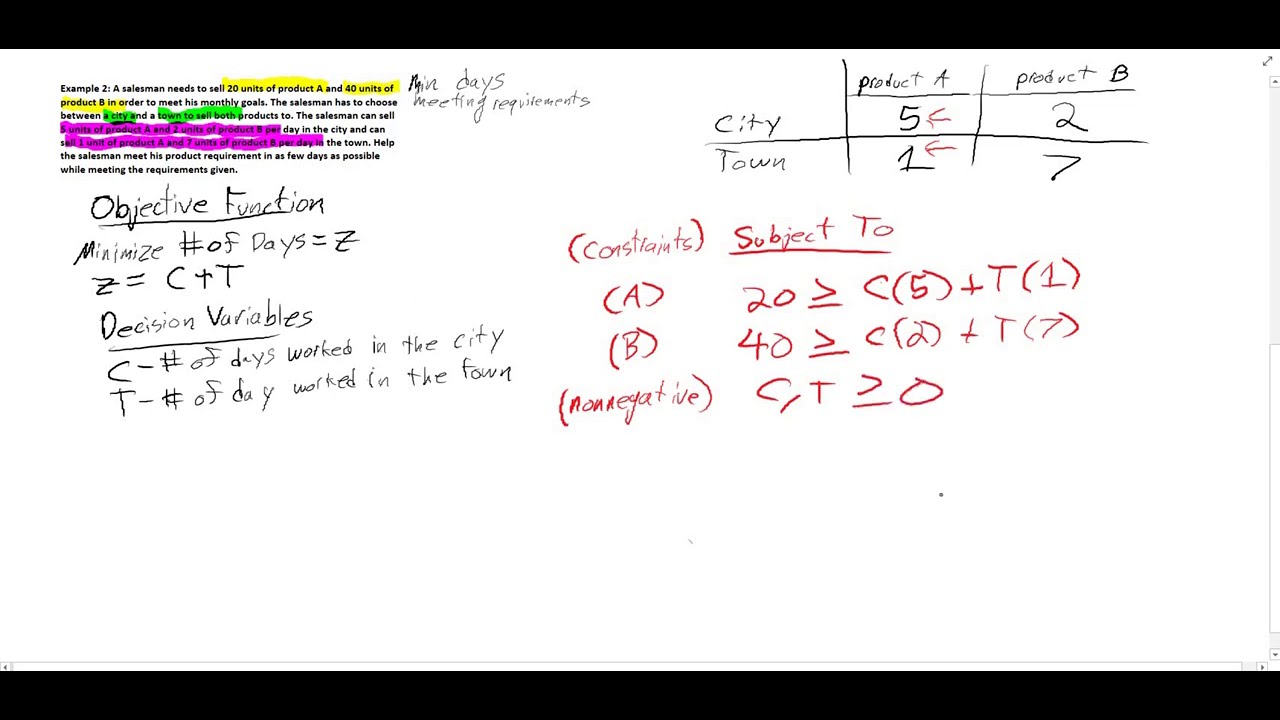 Example 2: A salesman needs to sell 20 units of product A and 40 units of
product B in order to meet his monthly goals. The salesman has to choose
between a city and a town to sell both products to. The salesman can sell
5 units of product A and 2 units of product B per day in the city and can
sell 1 unit of product A and 7 units of product B per day in the town. Help
the salesman meet his product requirement in as few days as possible
while meeting the requirements given.
Min days
meeting requirements
product A product B
City 5 ← 2
Town 1 ← 7
Objective Function
Minimize # of Days = Z
Z = C + T
Decision Variables
C - # of days worked in the city
T - # of day worked in the town
(constraints) Subject To
(A) 20 ≥ C(5) + T(1)
(B) 40 ≥ C(2) + T(7)
(nonnegative) C, T ≥ 0